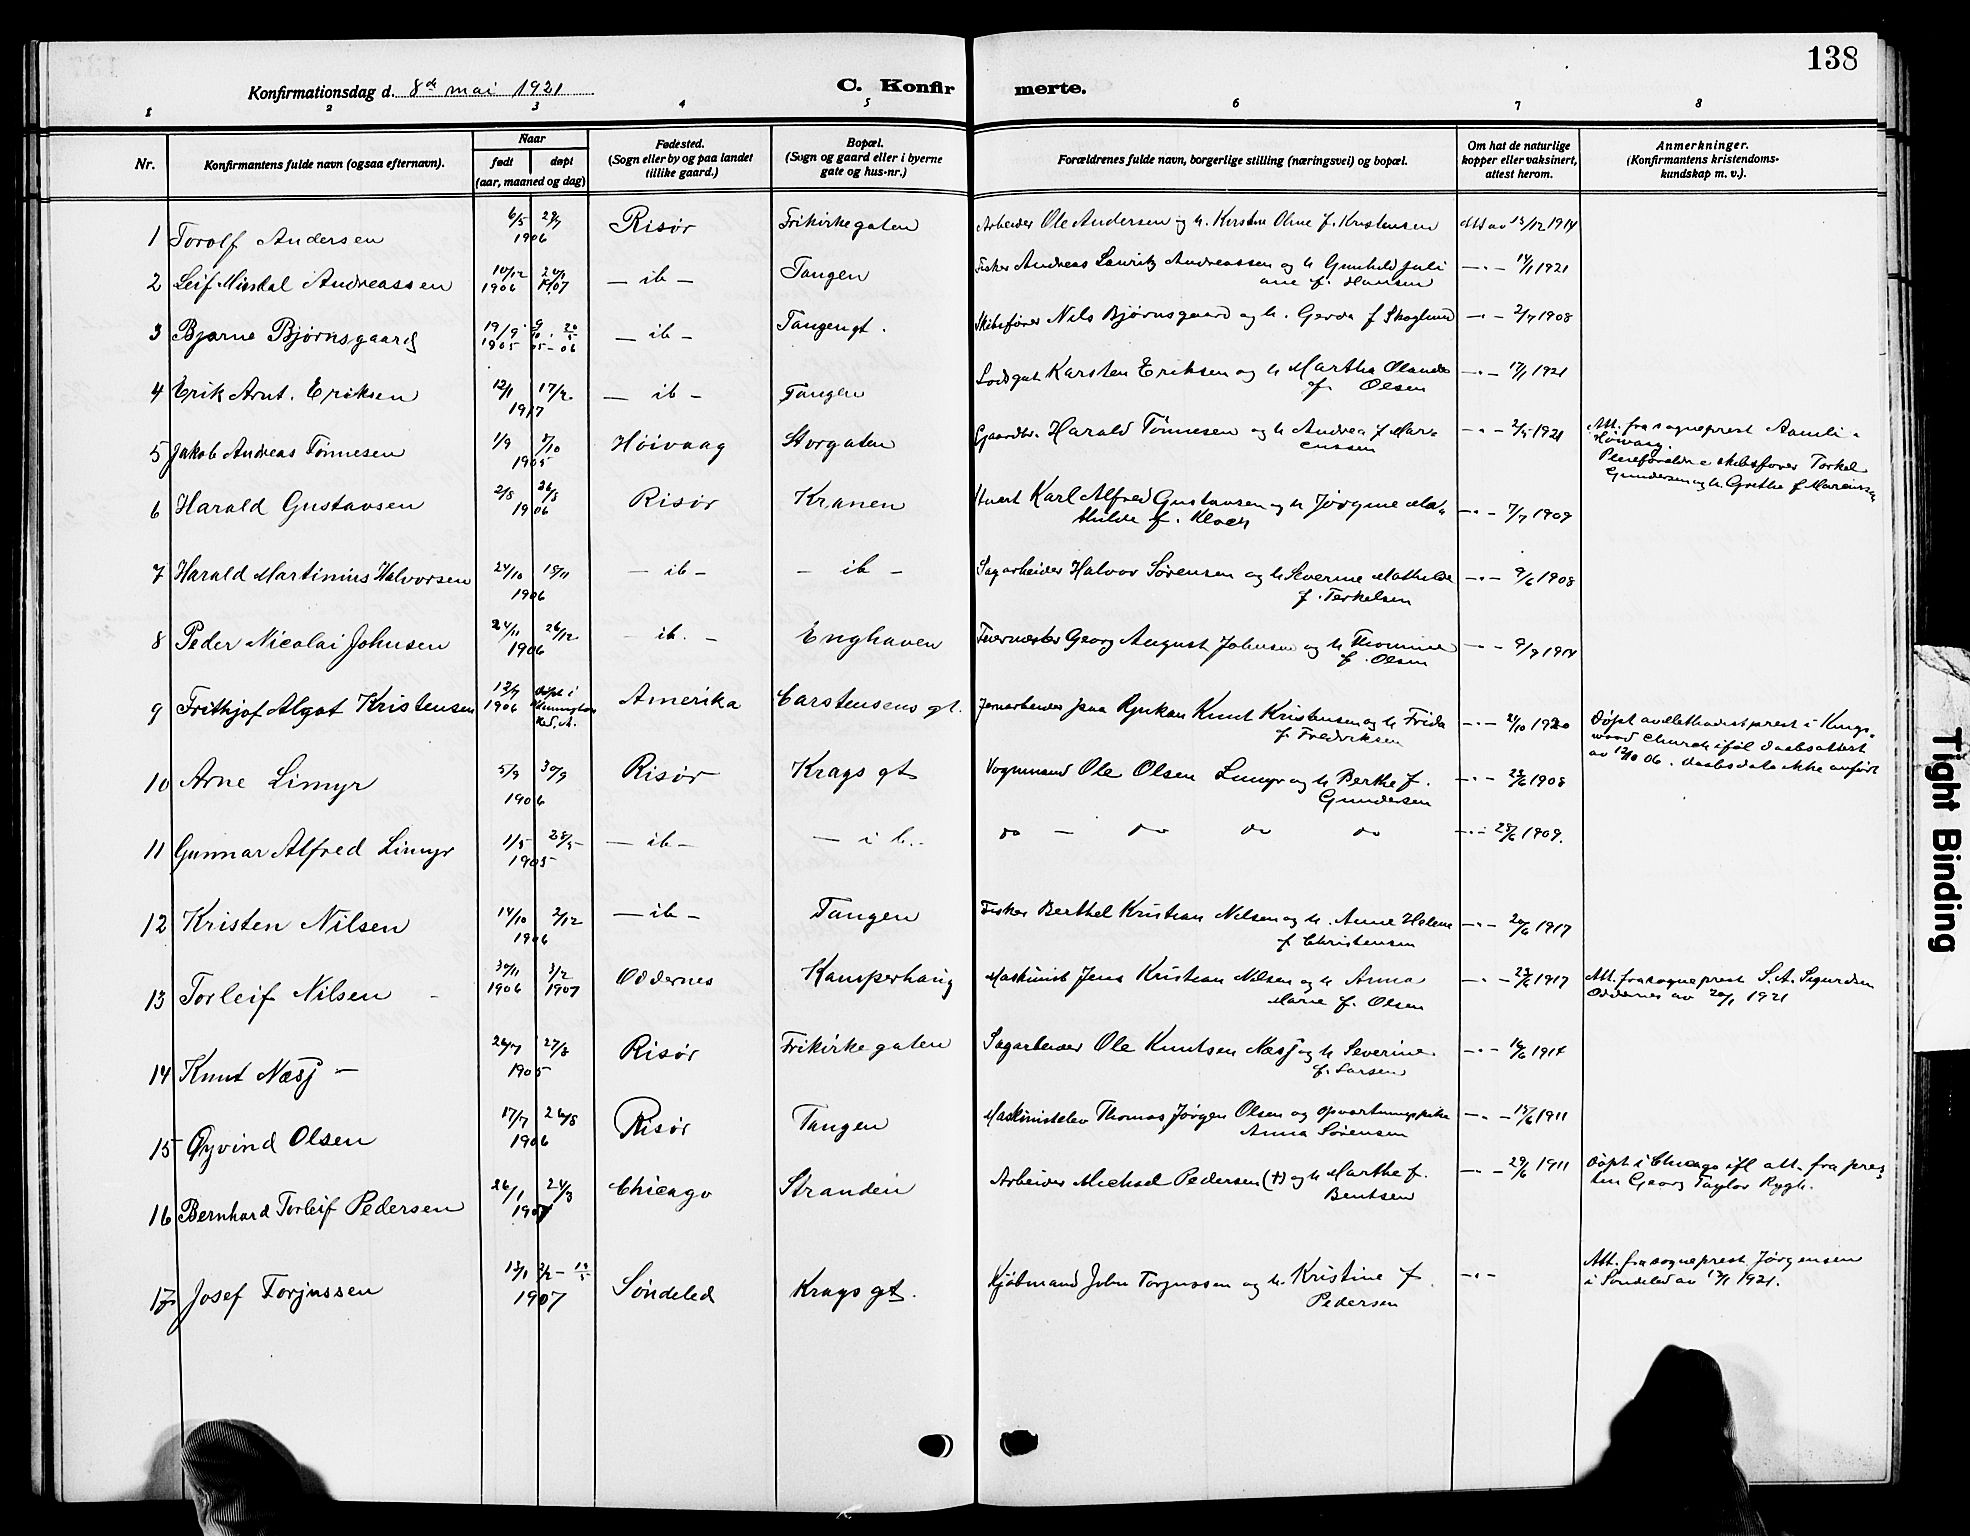 138
Konfirmationsdag d. 8de mai 1921 C. Konfirmerte.
1 2 3 4 5 6 7 8
Nr. Konfirmantens fulde navn (ogsaa efternavn). Naar født døpt (aar, maaned og dag) Fødested. (Sogn eller by og paa landet tillike gaard.) Bopæl. (Sogn og gaard eller i byerne gate og hus-nr.) Forældrenes fulde navn, borgerlige stilling (næringsvei) og bopæl. Om hat de naturlige kopper eller vaksinert, attest herom. Anmerkninger. (Konfirmantens kristendomskundskap m. v.).
1 Torolf Andersen 6/5 1906 Risør Frikirkegaten Arbeider Ole Andersen og h. Kirstine Oline f. Kristensen 1914
2 Leif Andreassen 10/12 1906 1907 — ib — Tangen Fisker Andreas Lauritz Andreassen og h Gunhild Juliane f. Hansen — " — 14/1 1921
3 Bjarne Bjørnsgaard 19/9 1905 — ib — Tangengt. Skibsfører Nils Bjørnsgaard og h. Gerda f Skoglund — " — 2/7 1908
4 Erik Arnt. Eriksen 12/1 17/2 1917 — ib — Tangen Lodsgut Karsten Eriksen og h Martha f. Olsen — " — 17/1 1921
5 Jakob Andreas Tønnesen 1/9 8/10 1905 Høivaag Storgaten Gaardbr. Harald Tønnesen og h Andrea f Marcussen — " — 2/5 1921 Att. fra sogneprest Aamli Høivaag. Pleieforældre skibsfører Torkel Gundersen og h Grethe f Marcussen
6 Harald Gustavsen 2/8 26/8 1906 Risør Kranen Karl Alfred Gustavsen og h Jørgine Mathilde f. — " — 7/7 1909
7 Harald Martinius Halvorsen 24/10 18/11 1906 — ib — — ib — Sagarbeider Halvor Sørensen og h Severine Mathilde f. Terkelsen — " — 9/6 1908
8 Peder Nicolai Johnsen 24/11 26/12 1906 ib. — Enghaven Georg August Johnsen og h Thomine f. Olsen — " — 9/7 1914
9 Frithjof Algot Kristensen 12/9 1906 Døpt i Amerika Carstensens gt. Jernarbeider paa Rjukan Knut Kristensen og h Frida f Fredriksen — " — 2/10 1920 Døpt av Methodistprest i Kingswood church iføl daabsattest av 12/10 06. Daabsdata ikke anført
10 Arne Limyr 5/9 30/9 1906 Risør Krags gt Vognmand Ole Olsen Limyr og h Berthe f. Gundersen — " — 23/6 1908
11 Gunnar Alfred Limyr 1/5 28/5 1905 — ib — — ib. do — do do do — " — 28/6 1909.
12 Kristen Nilsen 14/10 2/12 1906 — ib — Tangen Fisker Berthel Kristian Nilsen og h. Anne Helene f Christensen — " — 20/6 1917
13 Torleif Nilsen 30/11 1906 3/2 1907 Oddernes Kamperhaug Maskinist Jens Kristian Nilsen og h Anna Marie f. Olsen — " — 23/6 1917 Att. fra sogneprest S. A. Sigurdsen Oddernes av 20/1 1921
14 Knut Næsj — 26/7 27/8 1905 Risør Frikirkegaten Sagarbeider Ole Knutsen Næsj og h Severine f. Larsen — " — 16/6 1914
15 Øyvind Olsen 17/7 26/8 1906 Risør Tangen Maskinistelev Thomas Jørgen Olsen og opvartningspike Anna Sørensen — " — 15/6 1911
16 Bernhard Torleif Pedersen 26/1 24/3 1907 Chicago Stranden Arbeider Michael Pedersen (†) og h Marthe f. Bentsen — " — 29/6 1911 Døpt i Chicago ifl att. fra presten Georg Taylor Rygh.
17 Josef Torjussen 13/1 1907 Søndeled Krags gt. Kjøbmand John Torjussen og h. Kristine f. Pedersen — " — Att. fra sogneprest Jørgensen i Søndeled av 17/1 1921.
Tight Binding